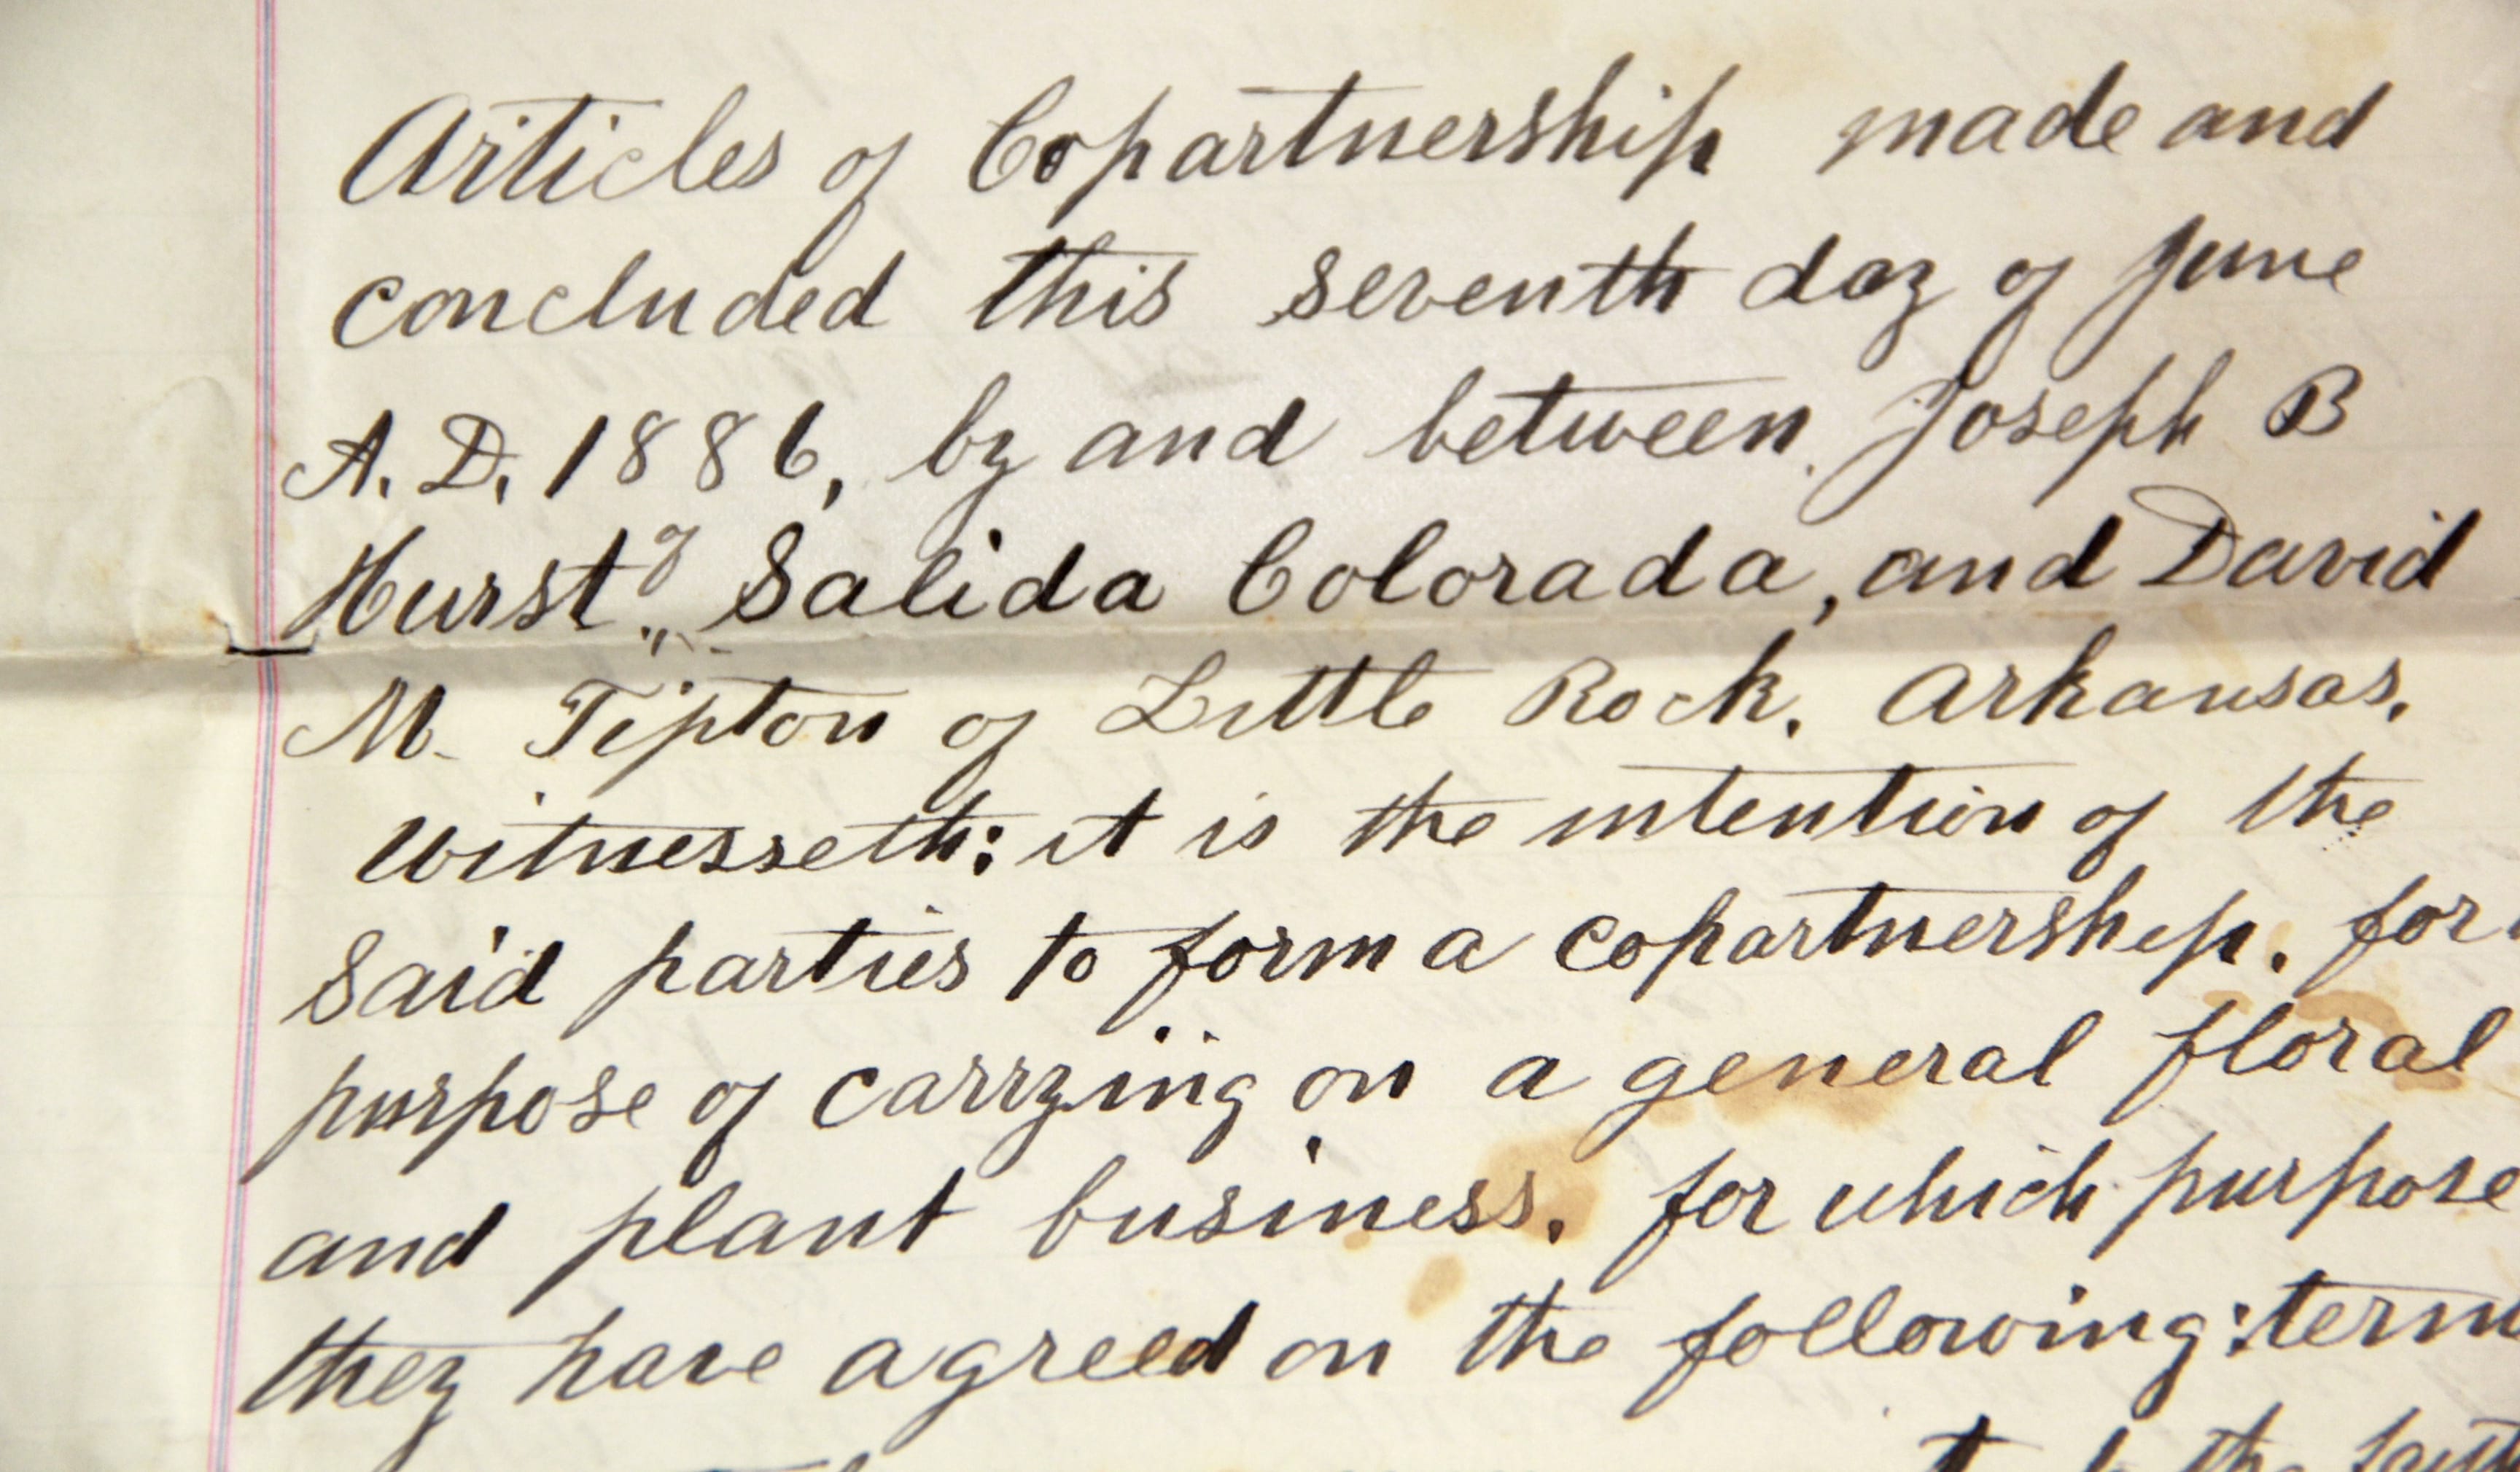 Articles of Copartnership made and
concluded this seventh day of June
A.D. 1886, by and between Joseph B
Hurst of Salida Colorada, and David
M. Tipton of Little Rock, Arkansas,
Witnesseth: it is the intention of the
Said parties to form a copartnership, for
purpose of carrying on a general floral
and plant business, for which purpose
they have agreed on the following: term
the